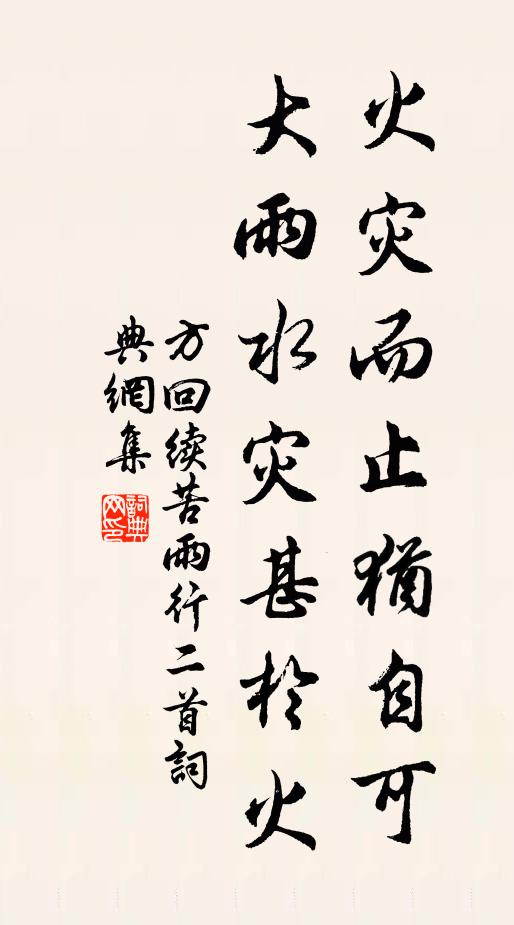 火灾而止猶自可
大雨水灾甚於火
方回續苦雨行二首詞
典網集
詞典網印